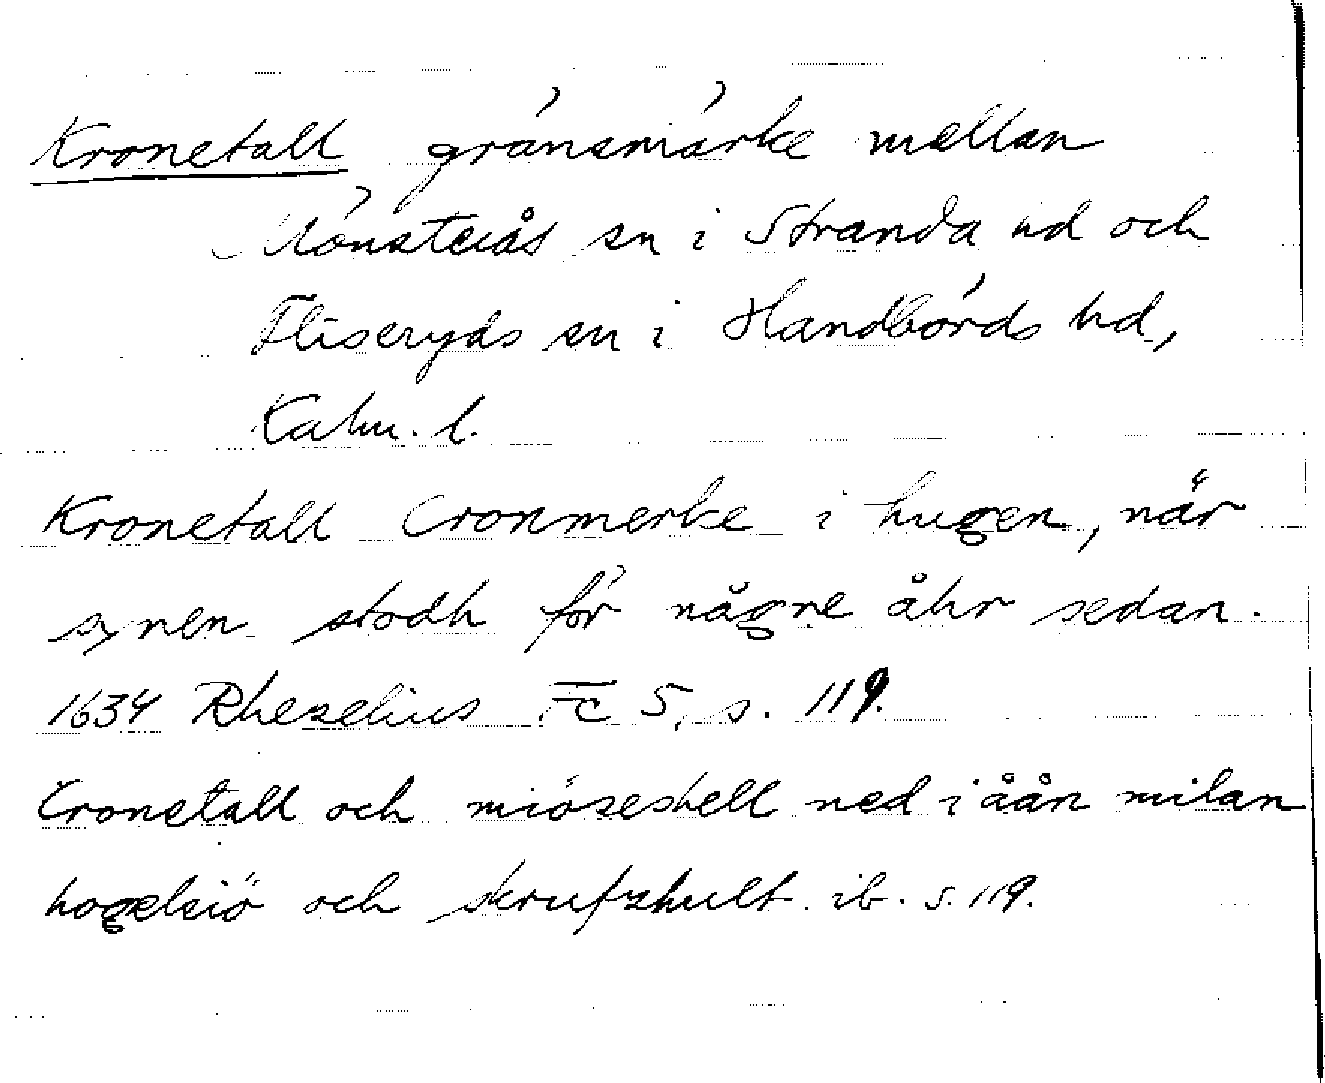 Kronetall gränsmärke mellan
Mönsterås sn i Stranda hd och
Fliseryds sn i Handbörds hd,
Kalm. l.
Kronetall Cronmerke i hugen, når
synen stodh för någne åhr sedan.
1634 Rhezelius Fc 5, s. 119.
Cronetall och miöseshell ned i åån milan
hogelsiö och skrufzhult. ib. s. 119.